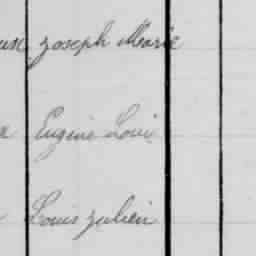 Joseph Marie
Eugène Loui
Louis Julien